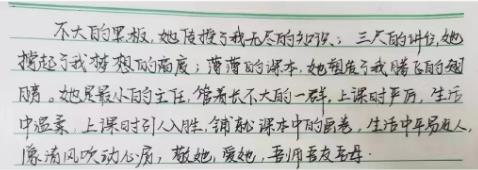 不大的黑板,她传授予我无尽的知识;三尺的讲台,她
撑起了我梦想的高度;薄薄的课本,她塑造了我腾飞的翅
膀。她是最小的主任,管着长不大的一群,上课时严厉,生活
中温柔,上课时引人入胜,铺就课本中的画卷,生活中平易近人,
像清风吹动心房,敬她,爱她,吾师吾友吾母.